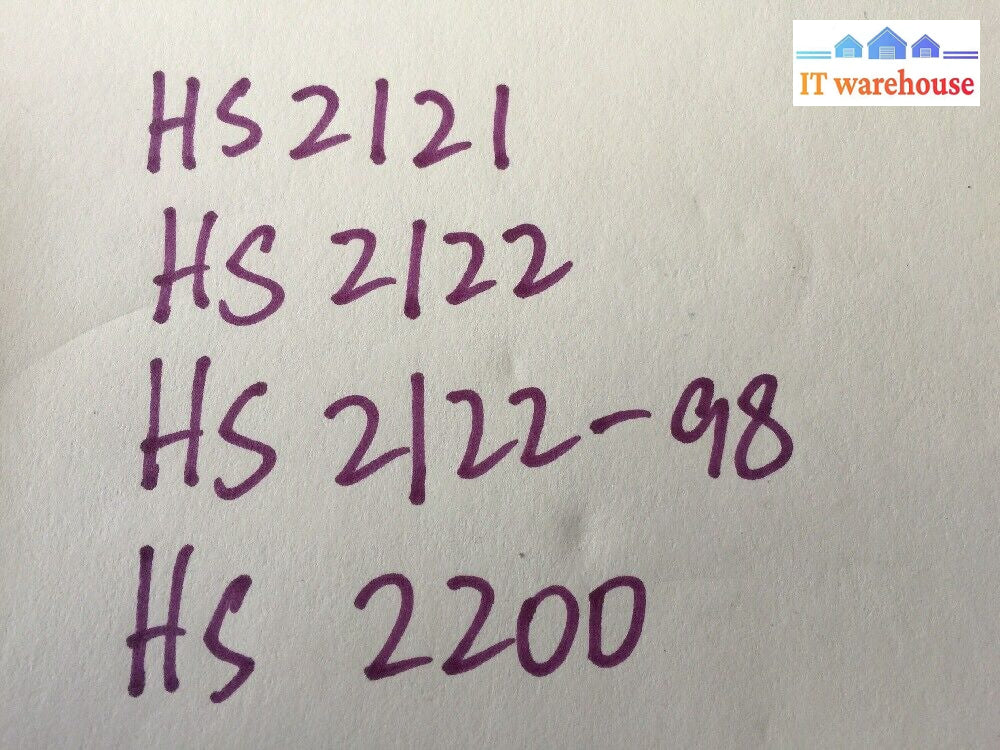 IT warehouse
HS 2121
HS 2122
HS 2122-98
HS 2200